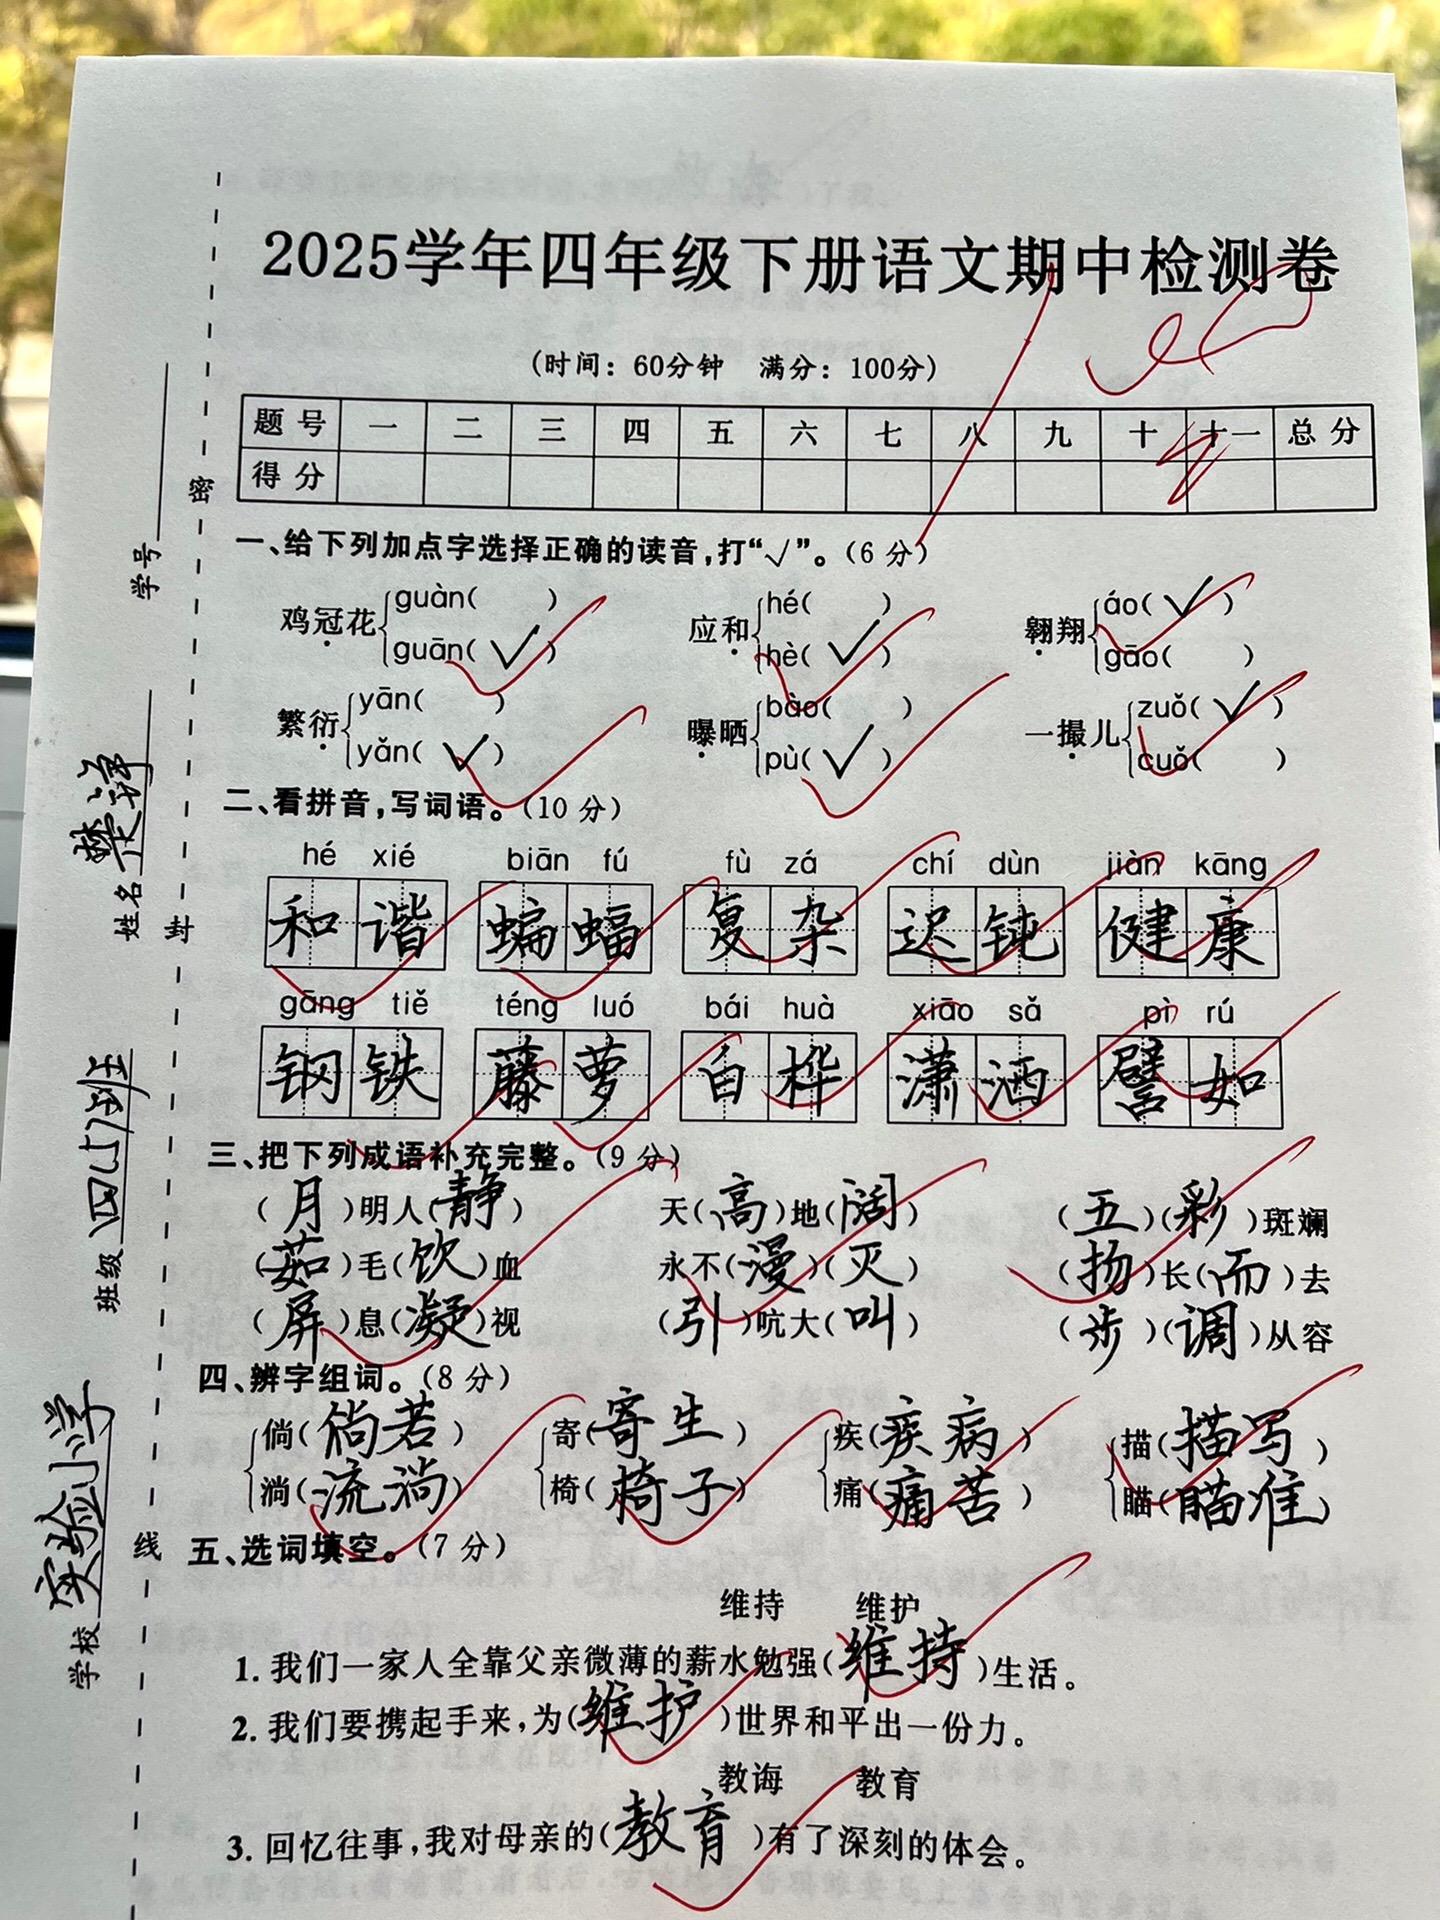 2025学年四年级下册语文期中检测卷
(时间：60分钟 满分：100分)
题号 一 二 三 四 五 六 七 八 九 十 十一 总分
得分
一、给下列加点字选择正确的读音,打“√”。(6分)
鸡冠花 guàn( ) guān(√) 应和 hé( ) hè(√) 翱翔 áo(√) gāo( )
繁衍 yān( ) yǎn(√) 曝晒 bào( ) pù(√) 一撮儿 zuǒ(√) cuǒ( )
二、看拼音,写词语。(10分)
hé xié biān fú fù zá chí dùn jiàn kāng
和谐 蝙蝠 复杂 迟钝 健康
gāng tiě téng luó bái huà xiāo sǎ pì rú
钢铁 藤萝 白桦 潇洒 譬如
三、把下列成语补充完整。(9分)
(月)明人(静) 天(高)地(阔) (五)(彩)斑斓
(茹)毛(饮)血 永不(漫)(灭) (扬)长(而)去
(屏)息(凝)视 (引)吭大(叫) (步)(调)从容
四、辨字组词。(8分)
倘(倘若) 寄(寄生) 疾(疾病) 描(描写)
淌(流淌) 椅(椅子) 痛(痛苦) 瞄(瞄准)
五、选词填空。(7分)
维持 维护
1. 我们一家人全靠父亲微薄的薪水勉强(维持)生活。
2. 我们要携起手来,为(维护)世界和平出一份力。
教诲 教育
3. 回忆往事,我对母亲的(教育)有了深刻的体会。
学校 实验小学 班级 四(5)班 姓名 楚洋 学号
密
封
线